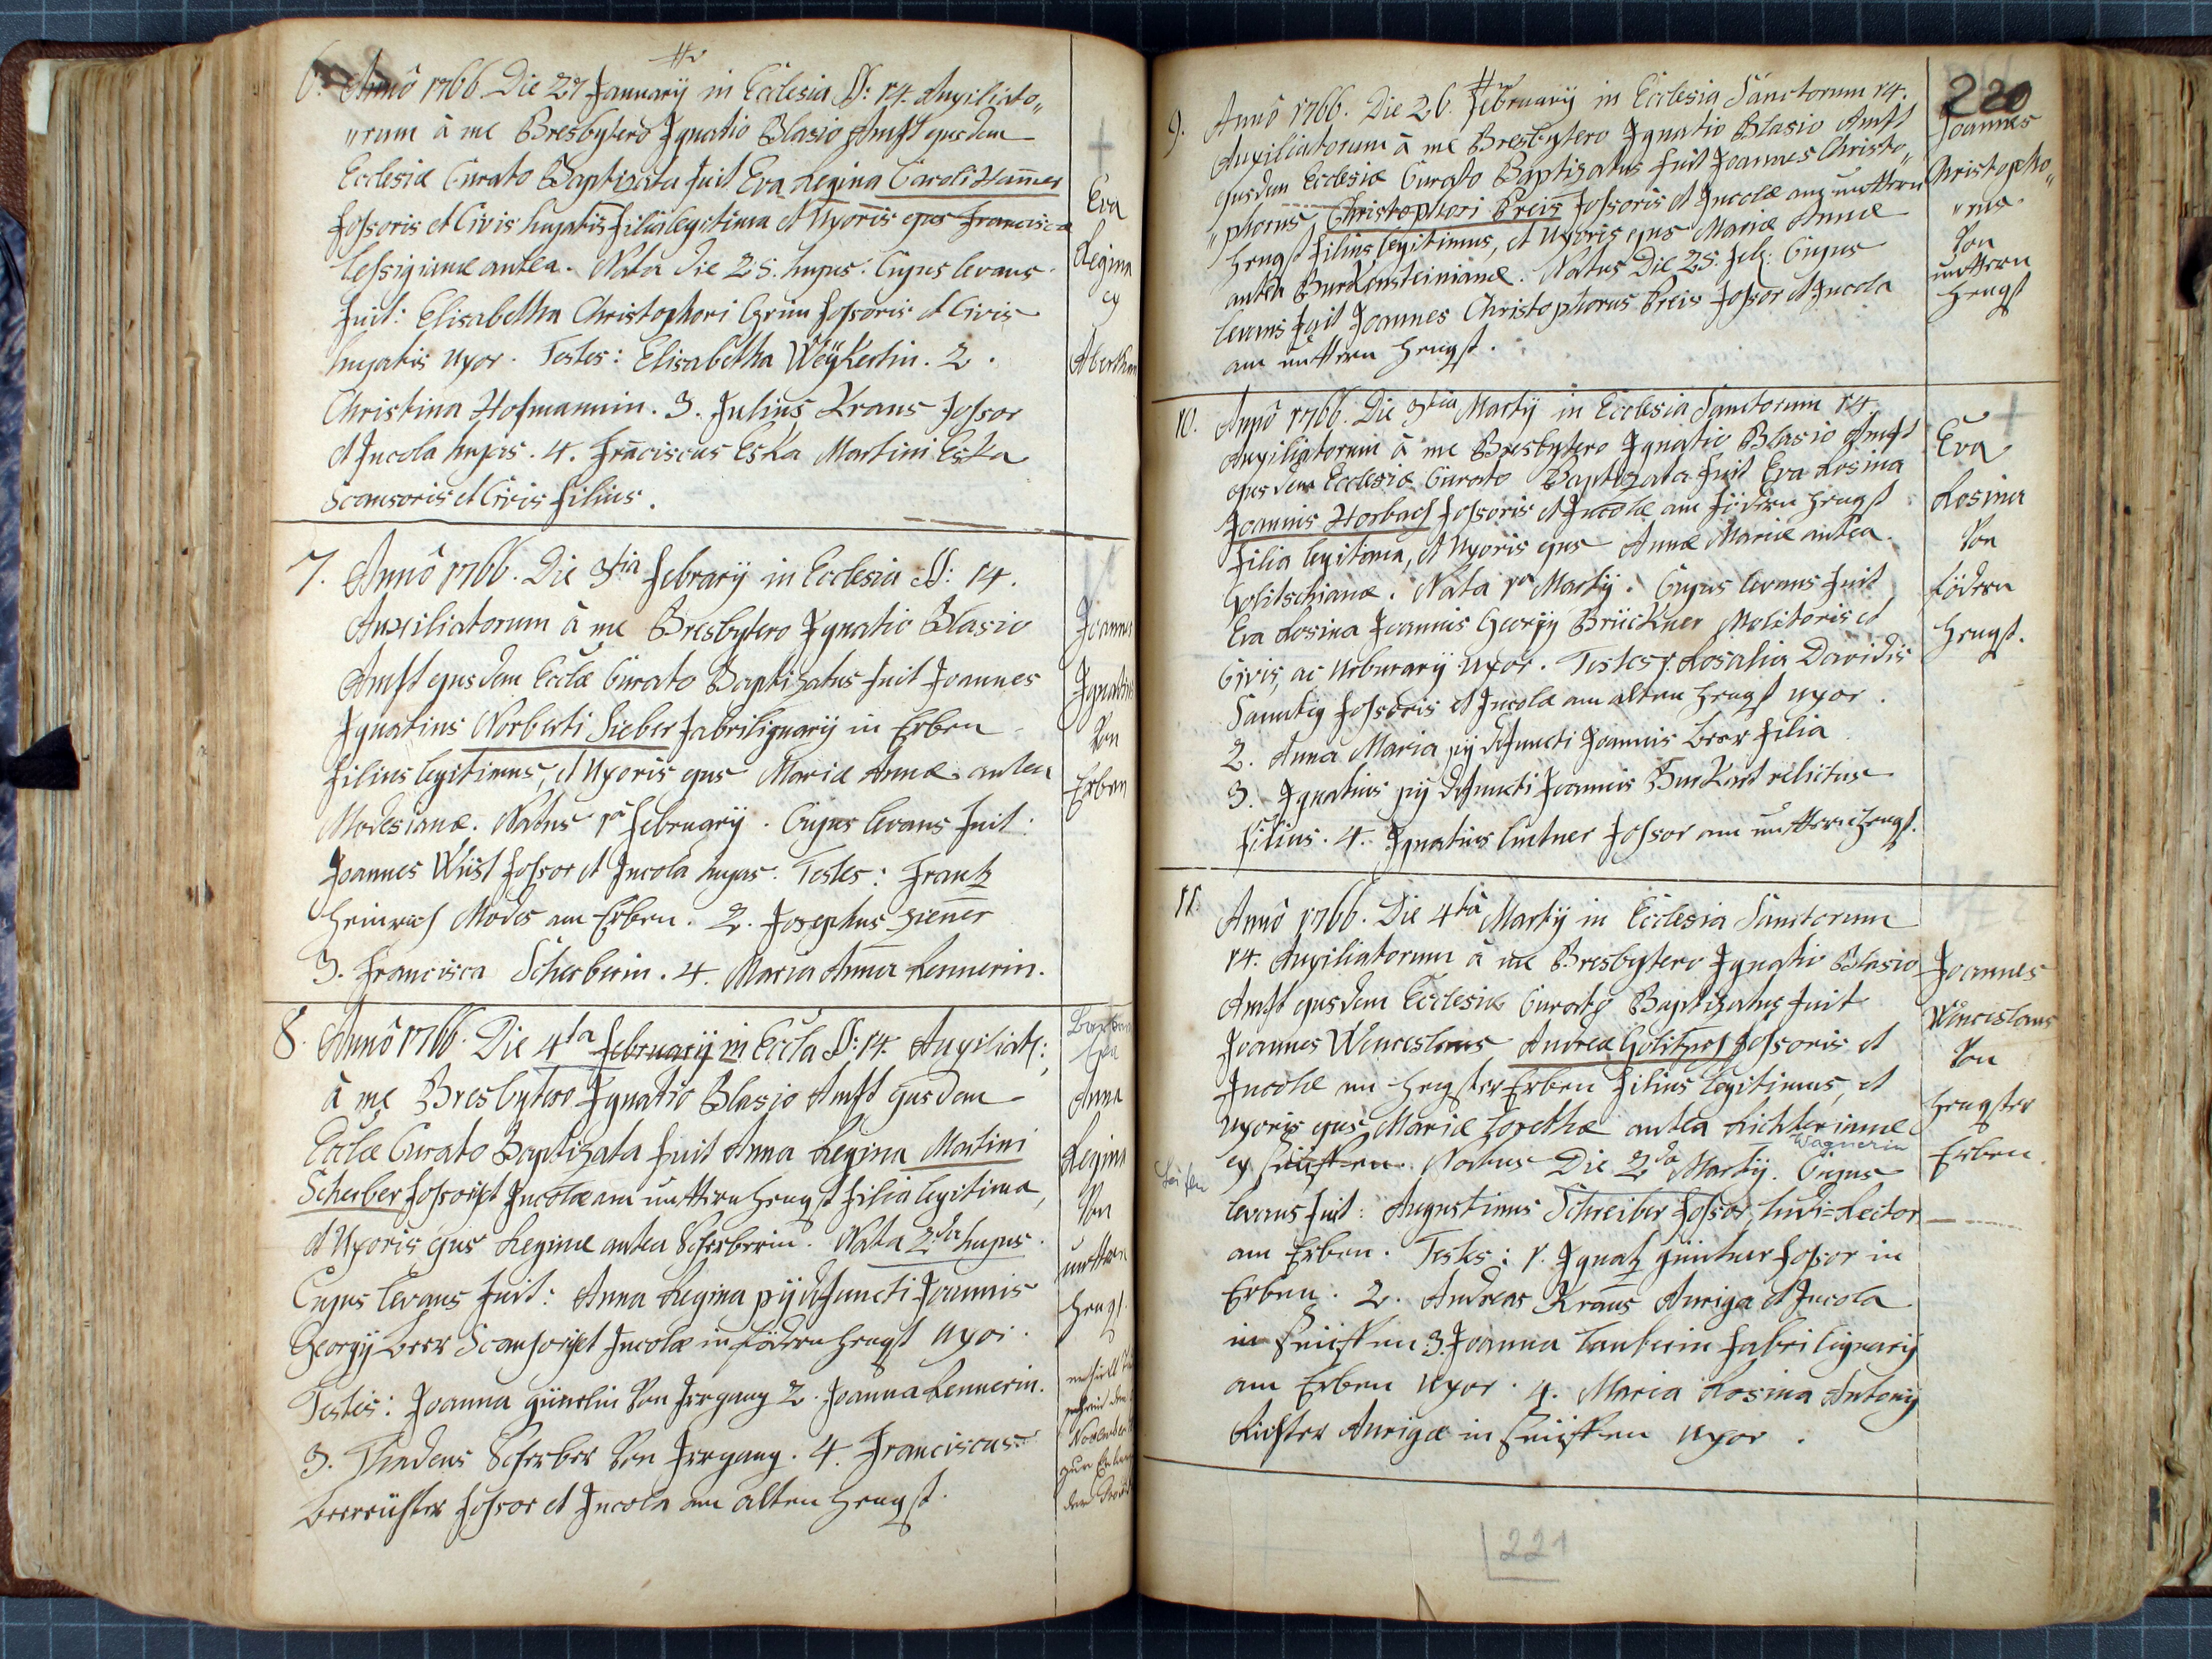 6. Annô 1766 Die 27 January in Ecclesia SS: 14. Auxiliato„
„rum à me Presbytero Ignatio Blasio Anst ejusdem
Ecclesiæ Curato Baptizata fuit Eva Regina Caroli Ham̅er
fossoris et Civis hujatis filia legitima et Uxoris ejus Francisca
Lessigianæ antea. Nata die 25. hujus. Cujus levans
fuit: Elisabetha Christophori Grim̅ fossoris et Civis
hujatis uxor. Testes: Elisabetha Weÿkertin. 2.
Christina Hofmannin. 3. Julius Kraus fossor
et Incola hujas. 4. Fran̅ciscus Eska Martini Eska
Scansoris et Civis filius.
Eva
Regina
ex
Abertham
7. Annô 1766. Die 3tia Februarÿ in Ecclesia SS: 14.
Auxiliatorum à me Presbytero Ignatio Blasio
Anst ejusdem Ecclæ Curato Baptizatus fuit Joannes
Ignatius Norberti Sieber fabrilignarÿ in Erben
filius legitimus, et Uxoris ejus Mariæ Annæ antea
Modesianæ. Natus 1a Februarÿ. Cujus levans fuit:
Joannes Wüst fossor et Incola hujas. Testes: Frantz
Heinrich Modes am Erben. 2. Josephus Zien̅er
3. Francisca Scherberin. 4. Maria Anna Rennerin.
Joannes
Ignatius
Von
Erben
8. Annô 1766. Die 4ta Februarÿ in Eccla SS: 14. Auxiliat:
à me Presbytero Ignatio Blasio Anst ejusdem
Ecclæ Curato Baptizata fuit Anna Regina Martini
Scherber fossoris et Incolæ am unttern Hengst filia legitima,
et Uxoris ejus Reginæ antea Scherberin. Nata 2da hujus.
Cujus levans fuit: Anna Regina pÿ defuncti Joannis
Georgÿ Beer Scansoris et Incolæ in födern Hengst uxor.
Testes: Joanna Günthin Von Irrgang 2. Joanna Rennerin.
3. Thadeus Scherber Von Irrgang. 4. Franciscus
Beerrichter fossor et Incola am alten Hengst.
Anna
Regina
Von
unttern
Hengst
November
220
9. Annô 1766. Die 26. February in Ecclesia Sanctorum 14.
Auxiliatorum à me Presbytero Ignatio Blasio Anst
ejusdem Ecclesiæ Curato Baptizatus fuit Joannes Christo„
„phorus Christophori Preis fossoris et Incolæ am unttern
Hengst filius legitimus, et Uxoris ejus Mariæ Annæ
antea Burkensteinianæ. Natus Die 25. feb: Cujus
levans fuit Joannes Christophorus Preis fossor et Incola
am unttern Hengst.
Joannes
Christopho„
„rus
Von
unttern
Hengst
10. Annô 1766. Die 3tia Martÿ in Ecclesia Sanctorum 14
Auxiliatorum à me Presbytero Ignatio Blasio Anst
ejusdem Ecclesiæ Curato Baptizata fuit Eva Rosina
Joannis Horbach fossoris et Incolæ am födern Hengst
filia legitima, et Uxoris ejus Annæ Mariæ antea
Golitschianæ. Nata 1a Martÿ. Cujus levans fuit
Eva Rosina Joannis Georgÿ Brückner Molitoris et
Civis, ac Urburarÿ uxor. Testes 1. Rosalia Davidis
fossoris et Incolæ am alten Hengst uxor.
2. Anna Maria pÿ defuncti Joannis Beer filia
3. Ignatius pÿ defuncti Joannis Burkert relictus
filius. 4. Ignatius Lintner fossor am unttern Hengst.
Eva
Rosina
Von
födern
Hengst.
11. Annô 1766. Die 4ta Martÿ in Ecclesia Sanctorum
14. Auxiliatorum à me Presbytero Ignatio Blasio
Anst ejusdem Ecclesiæ Curato Baptizatus fuit
Joannes Wenceslaus Andreæ Golitzsch fossoris et
Incolæ am Hengster Erben filius legitimus, et
Uxoris ejus Mariæ Dorethæ antea Richterianæ
Wagnerin
ex Seiffen. Natus Die 2da Martÿ. Cujus
levans fuit: Augustinus Schreiber fossor, ludi=Rector
am Erben. Testes: 1. Ignatz Günther fossor in
Erben. 2. Andreas Kraus Auriga et Incola
in Seiiffen. 3. Joanna Tauberin fabri lignarÿ
am Erben uxor. 4. Maria Rosina Antonÿ
Richter Aurigæ in Seiiffen uxor.
Joannes
Wenceslaus
Von
Hengster
Erben
Seifen
221